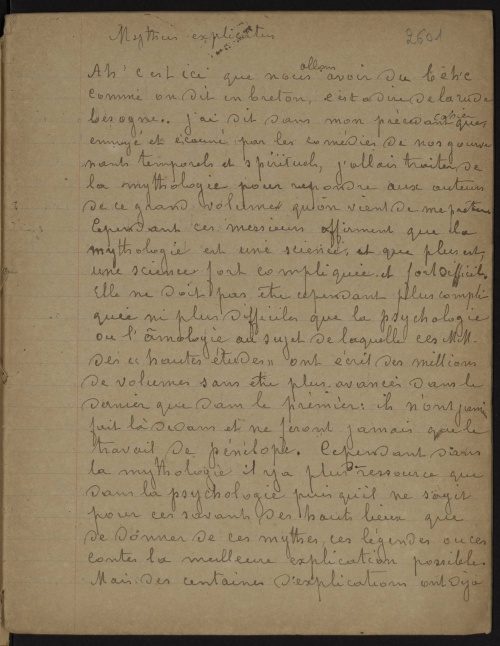 Mythus explicatus
2601
Ah' c'est ici que nous allons avoir du bec'h
comme on dit en breton, c'est a dire de la rude
bésogne.. j'ai dit dans mon précedant cahier que,
ennuyé et écoeuré par les comédies de nos gouver
nants temporels et spirituels, j'allais traiter de
la mythologie pour repondre aux auteurs
de ce grand volume qu'on vient de me preter
Cependant ces messieurs affirment que la
mythologie est une science, et que plus est,
une science fort compliquée et fort difficile.
Elle ne doit pas être cependant plus compli
quée ni plus difficiles que la psychologie
ou l'âmologie au sujet de laquelle ces M.M.
des "hautes études" ont écrit des millions
de volumes sans etre plus avancés dans le
dernier que dans le prémier: ils n'ont jamais
fait là dedans et ne feront jamais que le
travail de pénélope. Cependant dans
la mythologie il y a plus de ressource que
dans la psychologie puisqu'il ne s'agit
pour ces savants des hauts lieux que
de donner de ces mythes, ces légendes ou ces
contes la meilleure explication possible.
Mais des centaines d'explications ont déjà